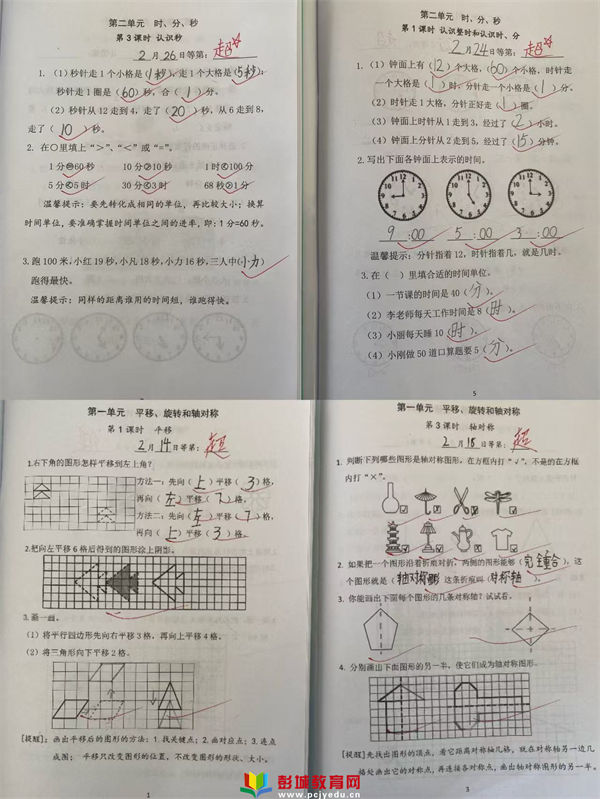 第二单元 时、分、秒
第3课时 认识秒
2月26日等第：超
1.（1）秒针走1个小格是（1秒），走1个大格是（5秒）；
秒针走1圈是（60）秒，合（1）分。
（2）秒针从12走到4，走了（20）秒，从6走到8，
走了（10）秒。
2. 在○里填上“>”、“<”或“=”。
1分=60秒 10分>10秒 1时<100分
5分<5时 30分<3时 68秒>1分
温馨提示：要先转化成相同的单位，再比较大小；换算
时间单位，要准确掌握时间单位之间的进率，即：1分=60秒。
3.跑100米，小红19秒，小凡18秒，小力16秒，三人中（小力）
跑得最快。
温馨提示：同样的距离谁用的时间短，谁跑得快。
第二单元 时、分、秒
第1课时 认识整时和认识时、分
2月24日等第：超
1.（1）钟面上有（12）个大格，（60）个小格，时针走
一个大格是（1）时，分针走一个小格是（1）分。
（2）时针走1大格，分针正好走（1）圈。
（3）钟面上时针从1走到3，经过了（2）小时。
（4）钟面上分针从2走到5，经过了（15）分钟。
2.写出下面各钟面上表示的时间。
9:00 5:00 3:00
温馨提示：分针指着12，时针指着几，就是几时。
3.在（ ）里填合适的时间单位。
（1）一节课的时间是40（分）。
（2）李老师每天工作时间是8（时）。
（3）小丽每天睡10（时）。
（4）小刚做50道口算题要5（分）。
5
第一单元 平移、旋转和轴对称
第1课时 平移
2月14日等第：超
1.右下角的图形怎样平移到左上角？
方法一：先向（上）平移（3）格，
再向（左）平移（7）格。
方法二：先向（左）平移（7）格，
再向（上）平移（3）格。
2.把向左平移6格后得到的图形涂上阴影。
3.画一画。
（1）将平行四边形先向右平移3格，再向上平移4格。
（2）将三角形向下平移2格。
[提醒]：画出平移后的图形的方法：1.找关键点；2.画对应点；3.连点
成图； 平移只改变图形的位置，不改变图形的形状、大小。
1
第一单元 平移、旋转和轴对称
第3课时 轴对称
2月18日等第：超
1. 判断下列哪些图形是轴对称图形，在方框内打“√”，不是的在方框
内打“×”。
2. 如果把一个图形沿着折痕对折，两侧的图形能够（完全重合），这
个图形就是（轴对称图形）这条折痕叫（对称轴）。
3. 你能画出下面每个图形的几条对称轴？试试看。
4. 分别画出下面图形的另一半，使它们成为轴对称图形。
[提醒]先找出图形的顶点，看它距离对称轴几格，就在对称轴另一边几
格处画出它的对称点，再连接各对称点，画出轴对称图形的另一半。
3
彭城教育网
www.pcjyedu.cn